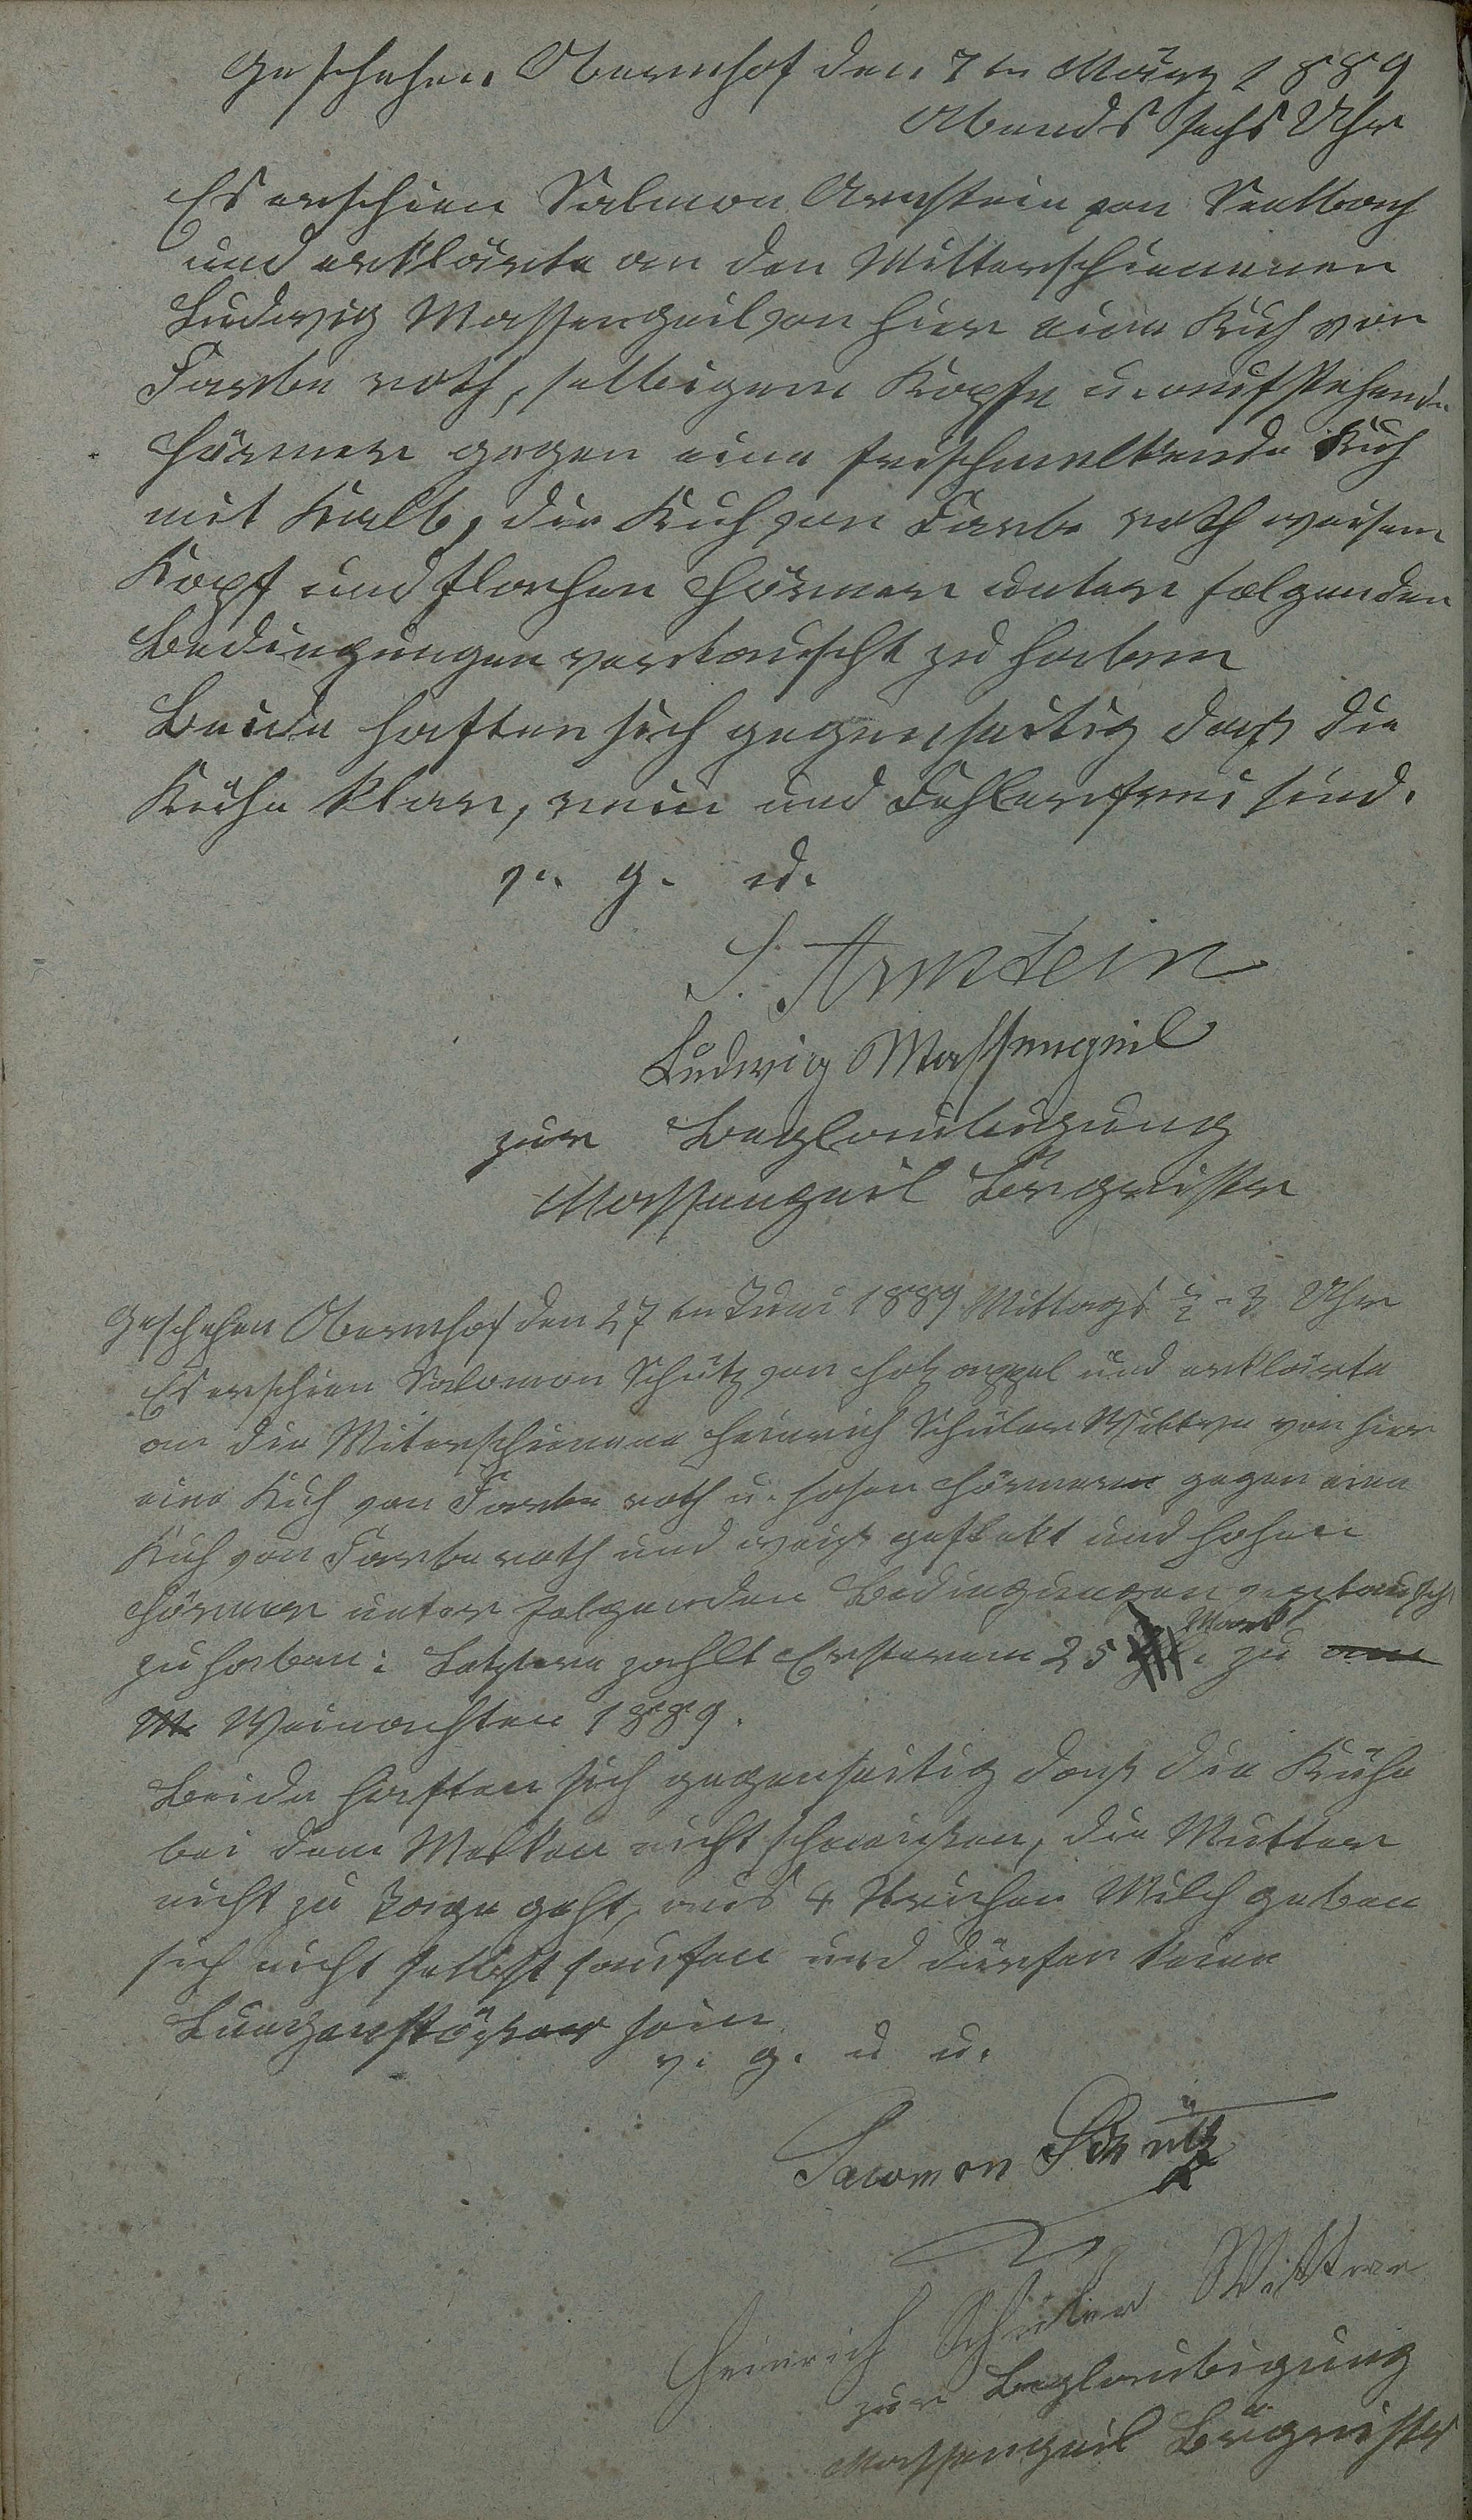 Geschehen Obernhof den 7ten März 1889
Abends sechs Uhr
Es erschien Salmon Arnstein von Seelbach
und erklärte an den Mitterschienenen
Ludwig Massengeil von hier eine Kuh von
Farbe roth, selbigem Kopfe u. aufstehende
Hörner gegen eine frischmelkende Kuh
mit Kalb, die Kuh von Farbe roth weisem
Kopf und flachen Hörner unter folgenden
Bedingungen vertauscht zu haben
Beide haften sich gegenseitig daß die
Kühe klar, rein und Fehlerfrei sind.
v. g. u.
S. Arnstein
Ludwig Massengeil
zur Beglaubigung
Massengeil Bürgmeister
Geschehen Obernhof den 27ten Juni 1889 Mittags ½ 3 Uhr
Es erschien Salomon Schütz von Holzappel und erklärte
an die Miterschienene Heinrich Schüler Wittwe von hier
eine Kuh von Farbe roth u. hohen Hörnern gegen eine
Kuh von Farbe roth und weiß geflekt und hohen
Hörner unter folgenden Bedingungen vertauscht
zu haben: Letztere zahlt Ersterem 25 Mark zu
Weinachten 1889.
Beide haften sich gegenseitig daß die Kühe
bei dem Melken nicht schmeißen, die Mutter
nicht zu Tage geht, aus 4 Strichen Milch geben
sich nicht selbst saufen und dürfen keine
sein
v. g. u u.
Salomon Schütz
Heinrich Schüler Wittwe
zur Beglaubigung
Massengeil Bürgmeister